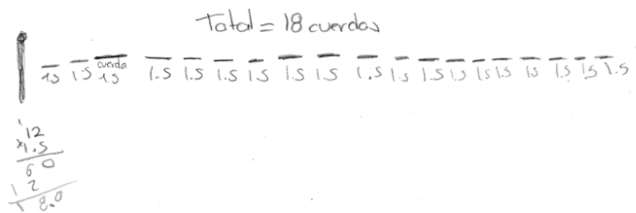 Total = 18 cuerdas
cuerda
1.5 1.5 1.5 1.5 1.5 1.5 1.5 1.5 1.5 1.5 1.5 1.5 1.5 1.5 1.5 1.5 1.5 1.5 1.5
1
12
x1.5
60
12
18.0